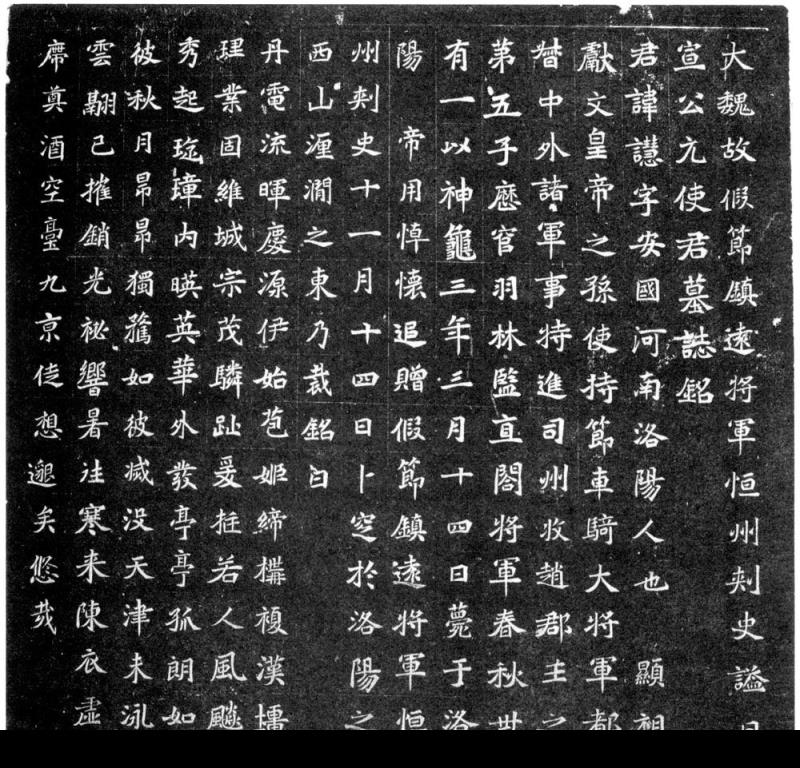 大魏故假節鎮遠將軍恒州刾史謚曰
宣公元使君墓誌銘
君諱譿字安國河南洛陽人也 顯祖
獻文皇帝之孫使持節車騎大將軍都
督中外諸軍事特進司州牧趙郡王之
第五子歷官羽林監直閤將軍春秋卅
有一以神龜三年三月十四日薨于洛
陽 帝用悼懷追贈假節鎮遠將軍恒
州刾史十一月十四日卜窆於洛陽之
西山瀍澗之東乃裁銘曰
丹電流暉慶源伊始苞姬締構複漢
珵業固維城宗茂驎趾爰挺若人風飈
秀起琁璋內暎英華外發亭亭孤朗如
彼秋月昂昂獨騖如彼滅没天津未泳
雲翮已摧銷光祕響暑往寒来陳衣虛
席奠酒空臺九京徒想邈矣悠哉